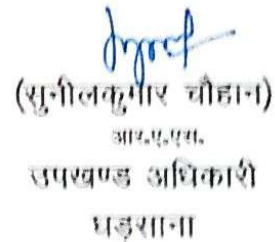 (सुनीलकुमार चौहान)
आर.ए.एस.
उपखण्ड अधिकारी
घड़साना